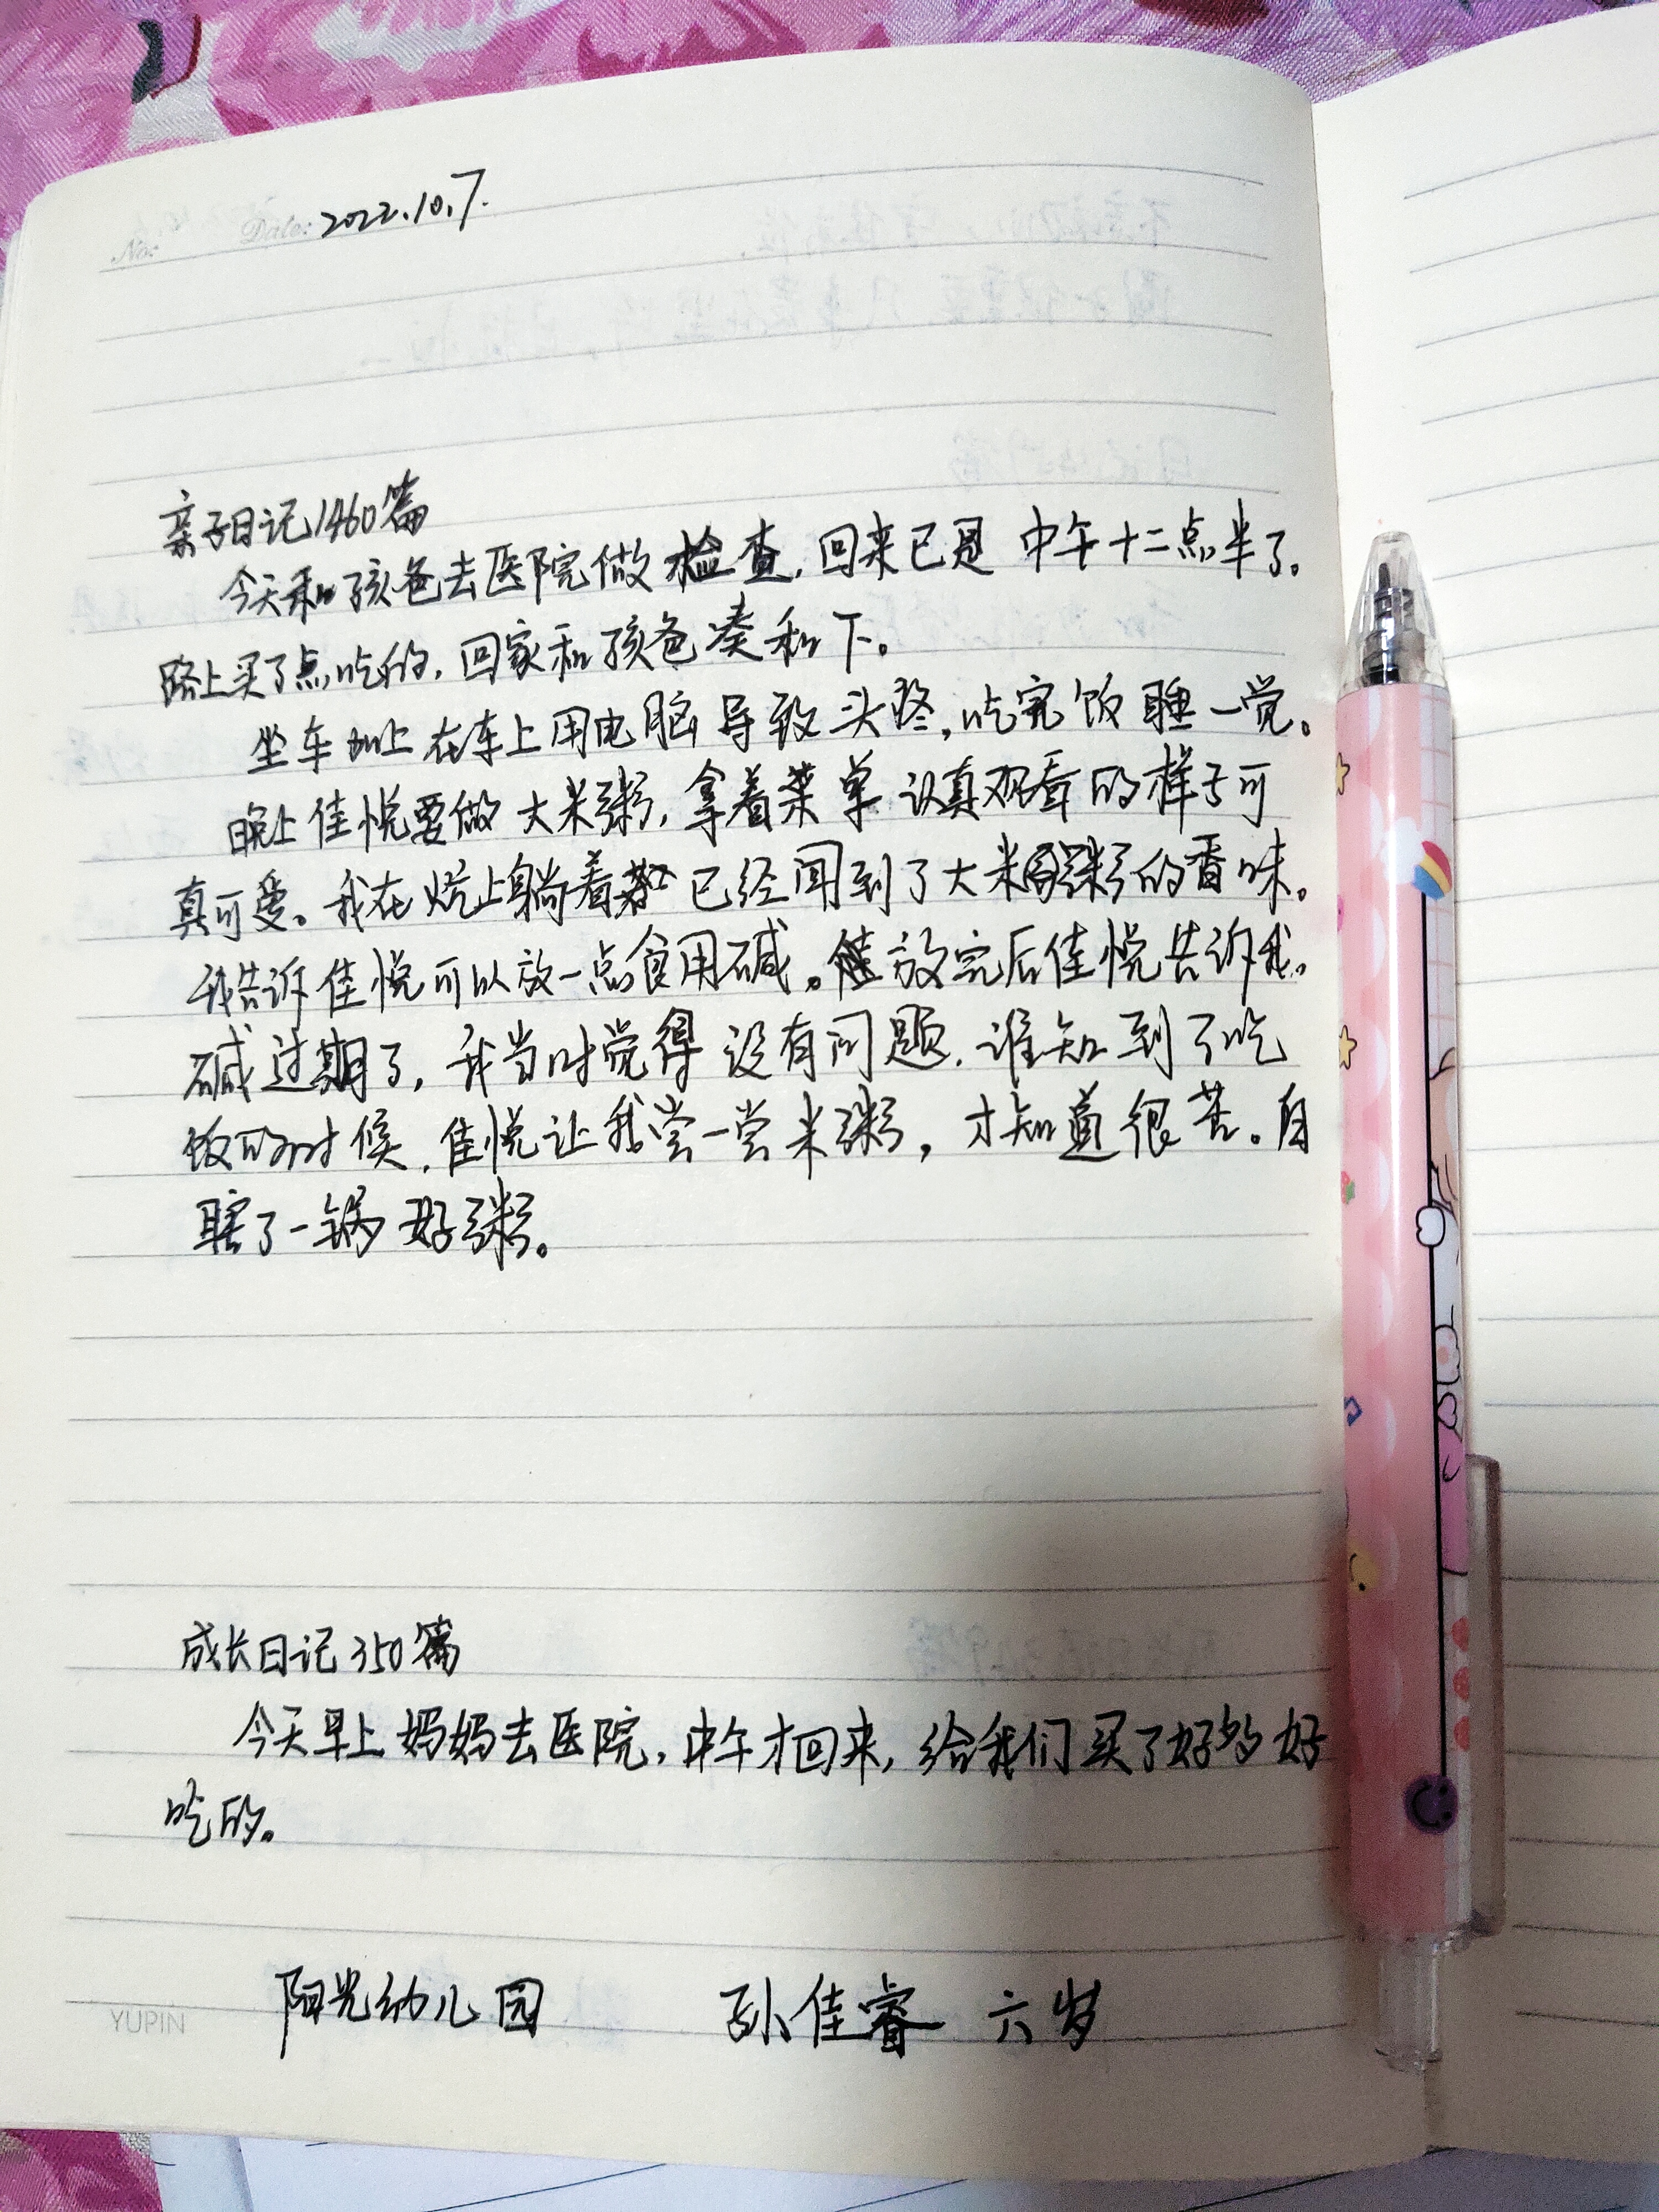 No:
Date: 2022.10.7.
亲子日记1460篇
今天和孩爸去医院做检查，回来已是中午十二点半了。
路上买了点吃的，回家和孩爸凑和下。
坐车加上在车上用电脑导致头疼，吃完饭睡一觉。
晚上佳悦要做大米粥，拿着菜单认真观看的样子可
真可爱。我在炕上躺着都已经闻到了大米粥的香味。
我告诉佳悦可以放一点食用碱。放完后佳悦告诉我。
碱过期了，我当时觉得没有问题，谁知到了吃
饭的时候，佳悦让我尝一尝米粥，才知道很苦。白
瞎了一锅好粥。
成长日记350篇
今天早上妈妈去医院，中午才回来，给我们买了好多好
吃的。
阳光幼儿园 孙佳睿 六岁
YUPIN